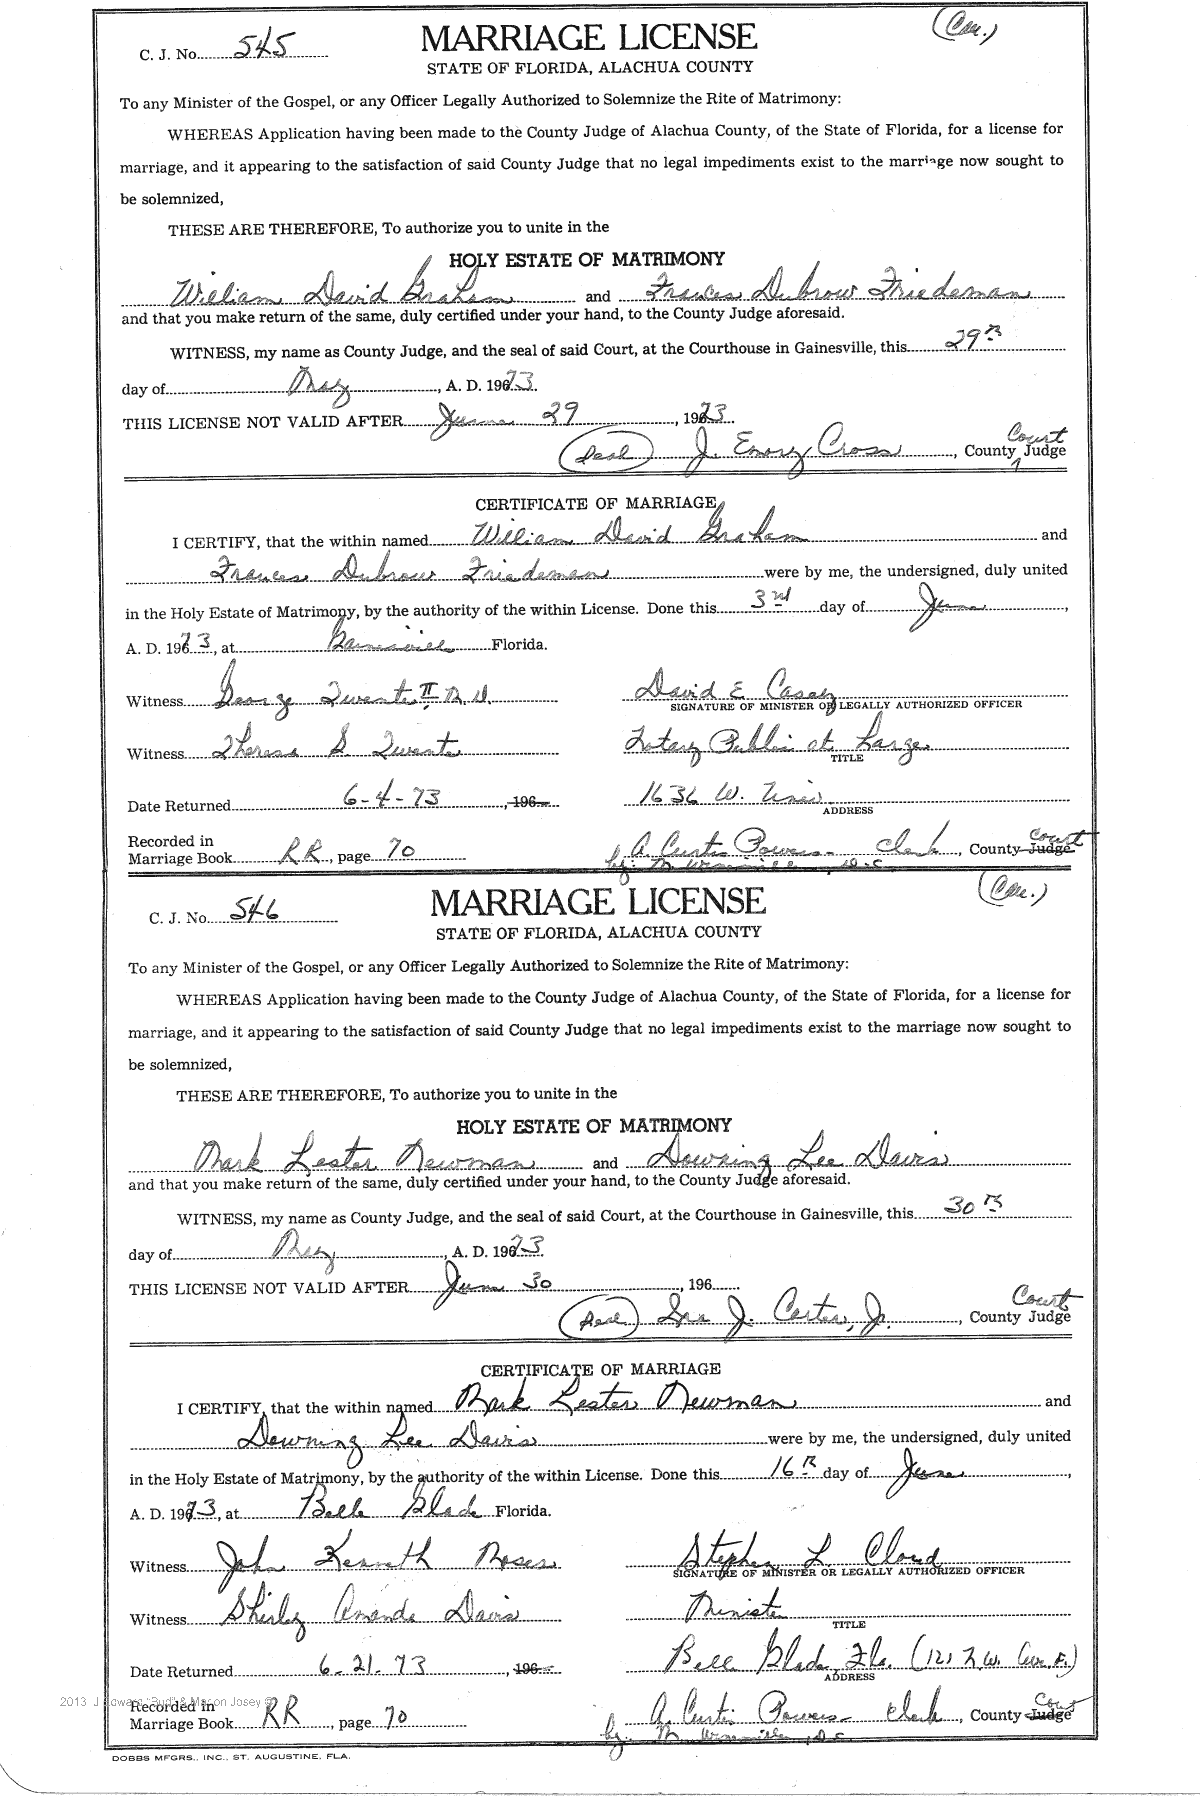 (Cau.)
C. J. No. 545
MARRIAGE LICENSE
STATE OF FLORIDA, ALACHUA COUNTY
To any Minister of the Gospel, or any Officer Legally Authorized to Solemnize the Rite of Matrimony:
WHEREAS Application having been made to the County Judge of Alachua County, of the State of Florida, for a license for
marriage, and it appearing to the satisfaction of said County Judge that no legal impediments exist to the marriage now sought to
be solemnized,
THESE ARE THEREFORE, To authorize you to unite in the
HOLY ESTATE OF MATRIMONY
William David Graham and Frances Dubrow Friedeman
and that you make return of the same, duly certified under your hand, to the County Judge aforesaid.
WITNESS, my name as County Judge, and the seal of said Court, at the Courthouse in Gainesville, this 29th
day of May, A. D. 1973.
THIS LICENSE NOT VALID AFTER June 29, 1973.
(Seal) J. Emory Cross, County Court Judge
CERTIFICATE OF MARRIAGE
I CERTIFY, that the within named William David Graham and
Frances Dubrow Friedeman were by me, the undersigned, duly united
in the Holy Estate of Matrimony, by the authority of the within License. Done this 3rd day of June,
A. D. 1973, at Gainesville Florida.
Witness George Twente II M.D. David E Casey
SIGNATURE OF MINISTER OR LEGALLY AUTHORIZED OFFICER
Witness Theresa S Twente Notary Public at Large
TITLE
Date Returned 6-4-73, 196 1636 W. Univ.
ADDRESS
Recorded in
Marriage Book RR, page 70 A. Curtis Powers Clerk, County Court Judge
by: M. D.C.
(Cau.)
C. J. No. 546
MARRIAGE LICENSE
STATE OF FLORIDA, ALACHUA COUNTY
To any Minister of the Gospel, or any Officer Legally Authorized to Solemnize the Rite of Matrimony:
WHEREAS Application having been made to the County Judge of Alachua County, of the State of Florida, for a license for
marriage, and it appearing to the satisfaction of said County Judge that no legal impediments exist to the marriage now sought to
be solemnized,
THESE ARE THEREFORE, To authorize you to unite in the
HOLY ESTATE OF MATRIMONY
Mark Lester Newman and Downing Lee Davis
and that you make return of the same, duly certified under your hand, to the County Judge aforesaid.
WITNESS, my name as County Judge, and the seal of said Court, at the Courthouse in Gainesville, this 30th
day of May, A. D. 1973.
THIS LICENSE NOT VALID AFTER June 30, 196
(Seal) Ira J. Carter, Jr., County Court Judge
CERTIFICATE OF MARRIAGE
I CERTIFY, that the within named Mark Lester Newman and
Downing Lee Davis were by me, the undersigned, duly united
in the Holy Estate of Matrimony, by the authority of the within License. Done this 16th day of June,
A. D. 1973, at Belle Glade Florida.
Witness John Kenneth Moses Stephen L. Cloud
SIGNATURE OF MINISTER OR LEGALLY AUTHORIZED OFFICER
Witness Shirley Amanda Davis Minister
TITLE
Date Returned 6-21-73, 196 Belle Glade, Fla. (121 N.W. Ave. F.)
ADDRESS
Recorded in
Marriage Book RR, page 70 A. Curtis Powers Clerk, County Court Judge
by: M. D.C.
2013 J Edward "Bud" & Macon Josey ©
DOBBS MFGRS., INC., ST. AUGUSTINE, FLA.